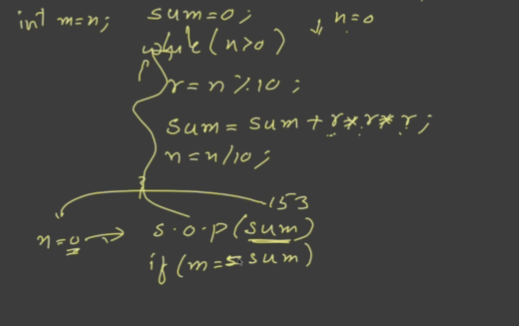 int m=n; sum=0;
while(n>0) ↓ n=0
{
r=n%10;
sum=sum+r*r*r;
n=n/10;
}
153
n=0 → s.o.p(sum)
if(m==sum)